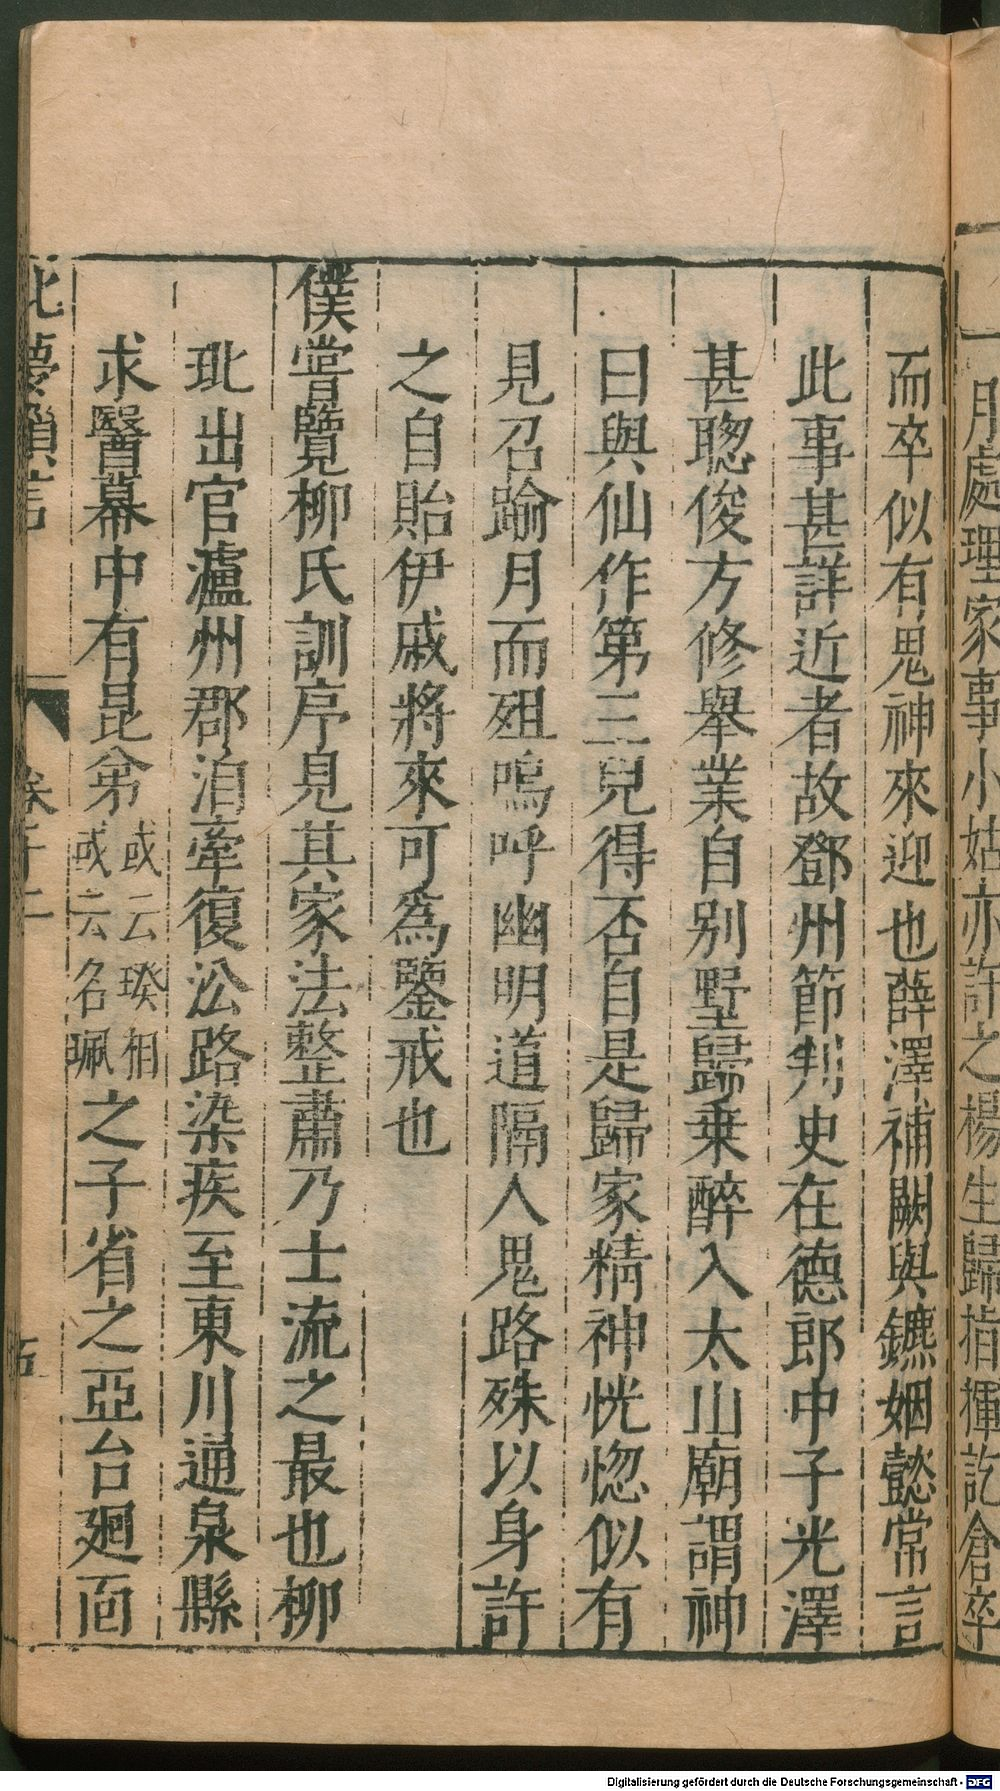 月處理家事小姑亦許之楊生歸指揮訖倉卒
而卒似有鬼神來迎也薛澤補闕與鑣姻懿常言
此事甚詳近者故鄧州節判史在德郎中子光澤
甚聦俊方修舉業自别墅歸乗醉入太山廟謂神
曰與仙作第三兒得否自是歸家精神恍惚似有
見召踰月而殂嗚呼幽明道隔人鬼路殊以身許
之自貽伊戚將來可為鑒戒也
僕嘗覽柳氏訓序見其家法整肅乃士流之最也柳
玭出官瀘州郡洎牽復㳂路染疾至東川通泉縣
求醫幕中有昆弟
或云瑔相
或云名珮
之子省之亞台廻靣
北夢瑣言
卷十二
五
Digitalisierung gefördert durch die Deutsche Forschungsgemeinschaft - DFG